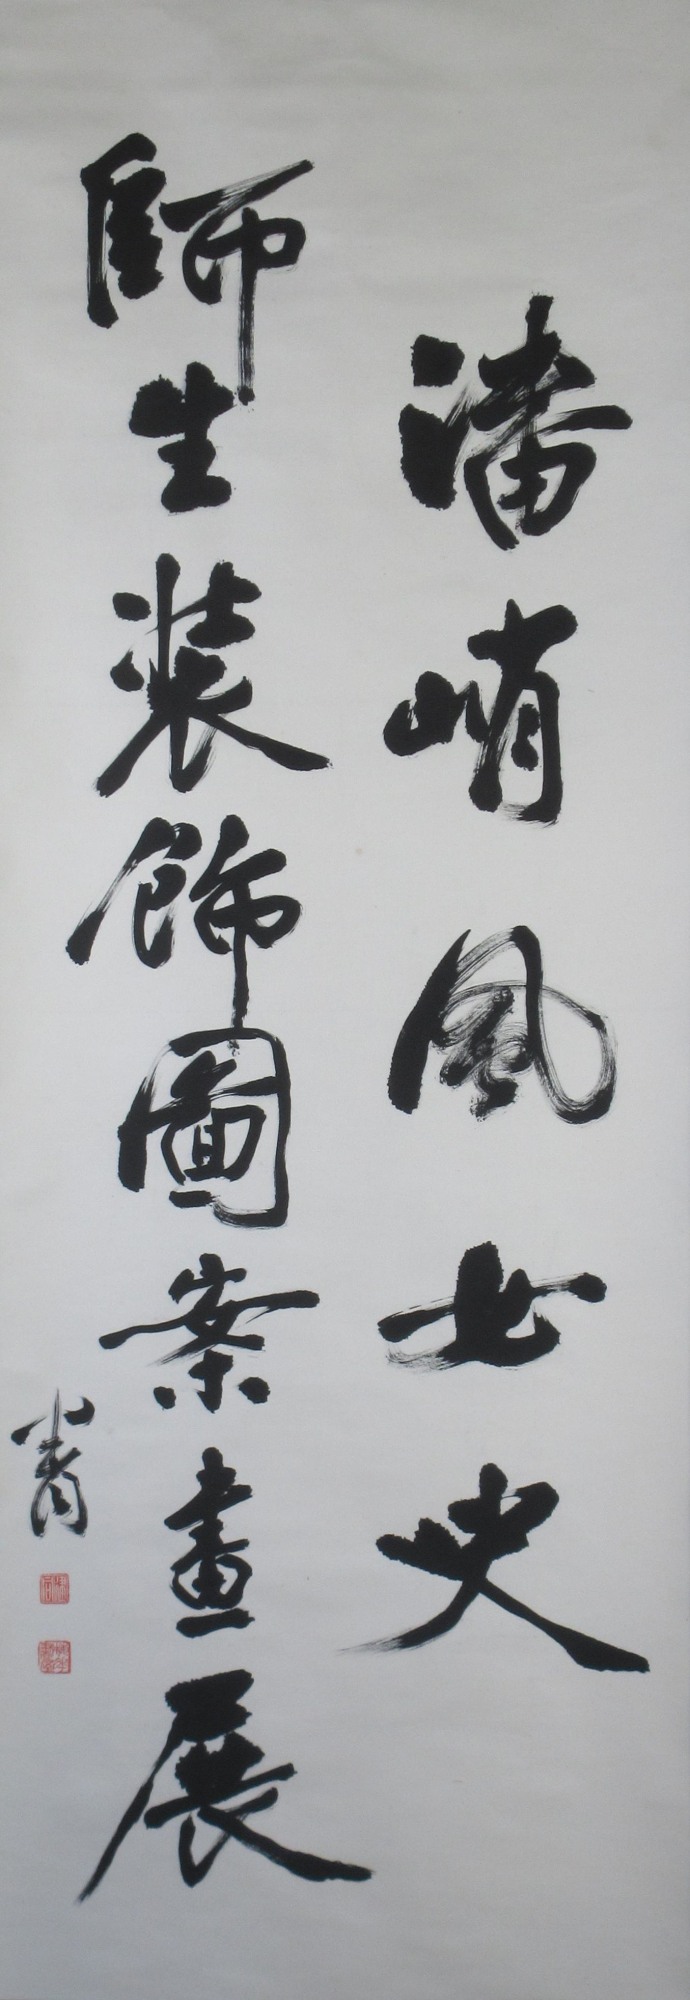 潘峭風女史
師生裝飾圖案畫展